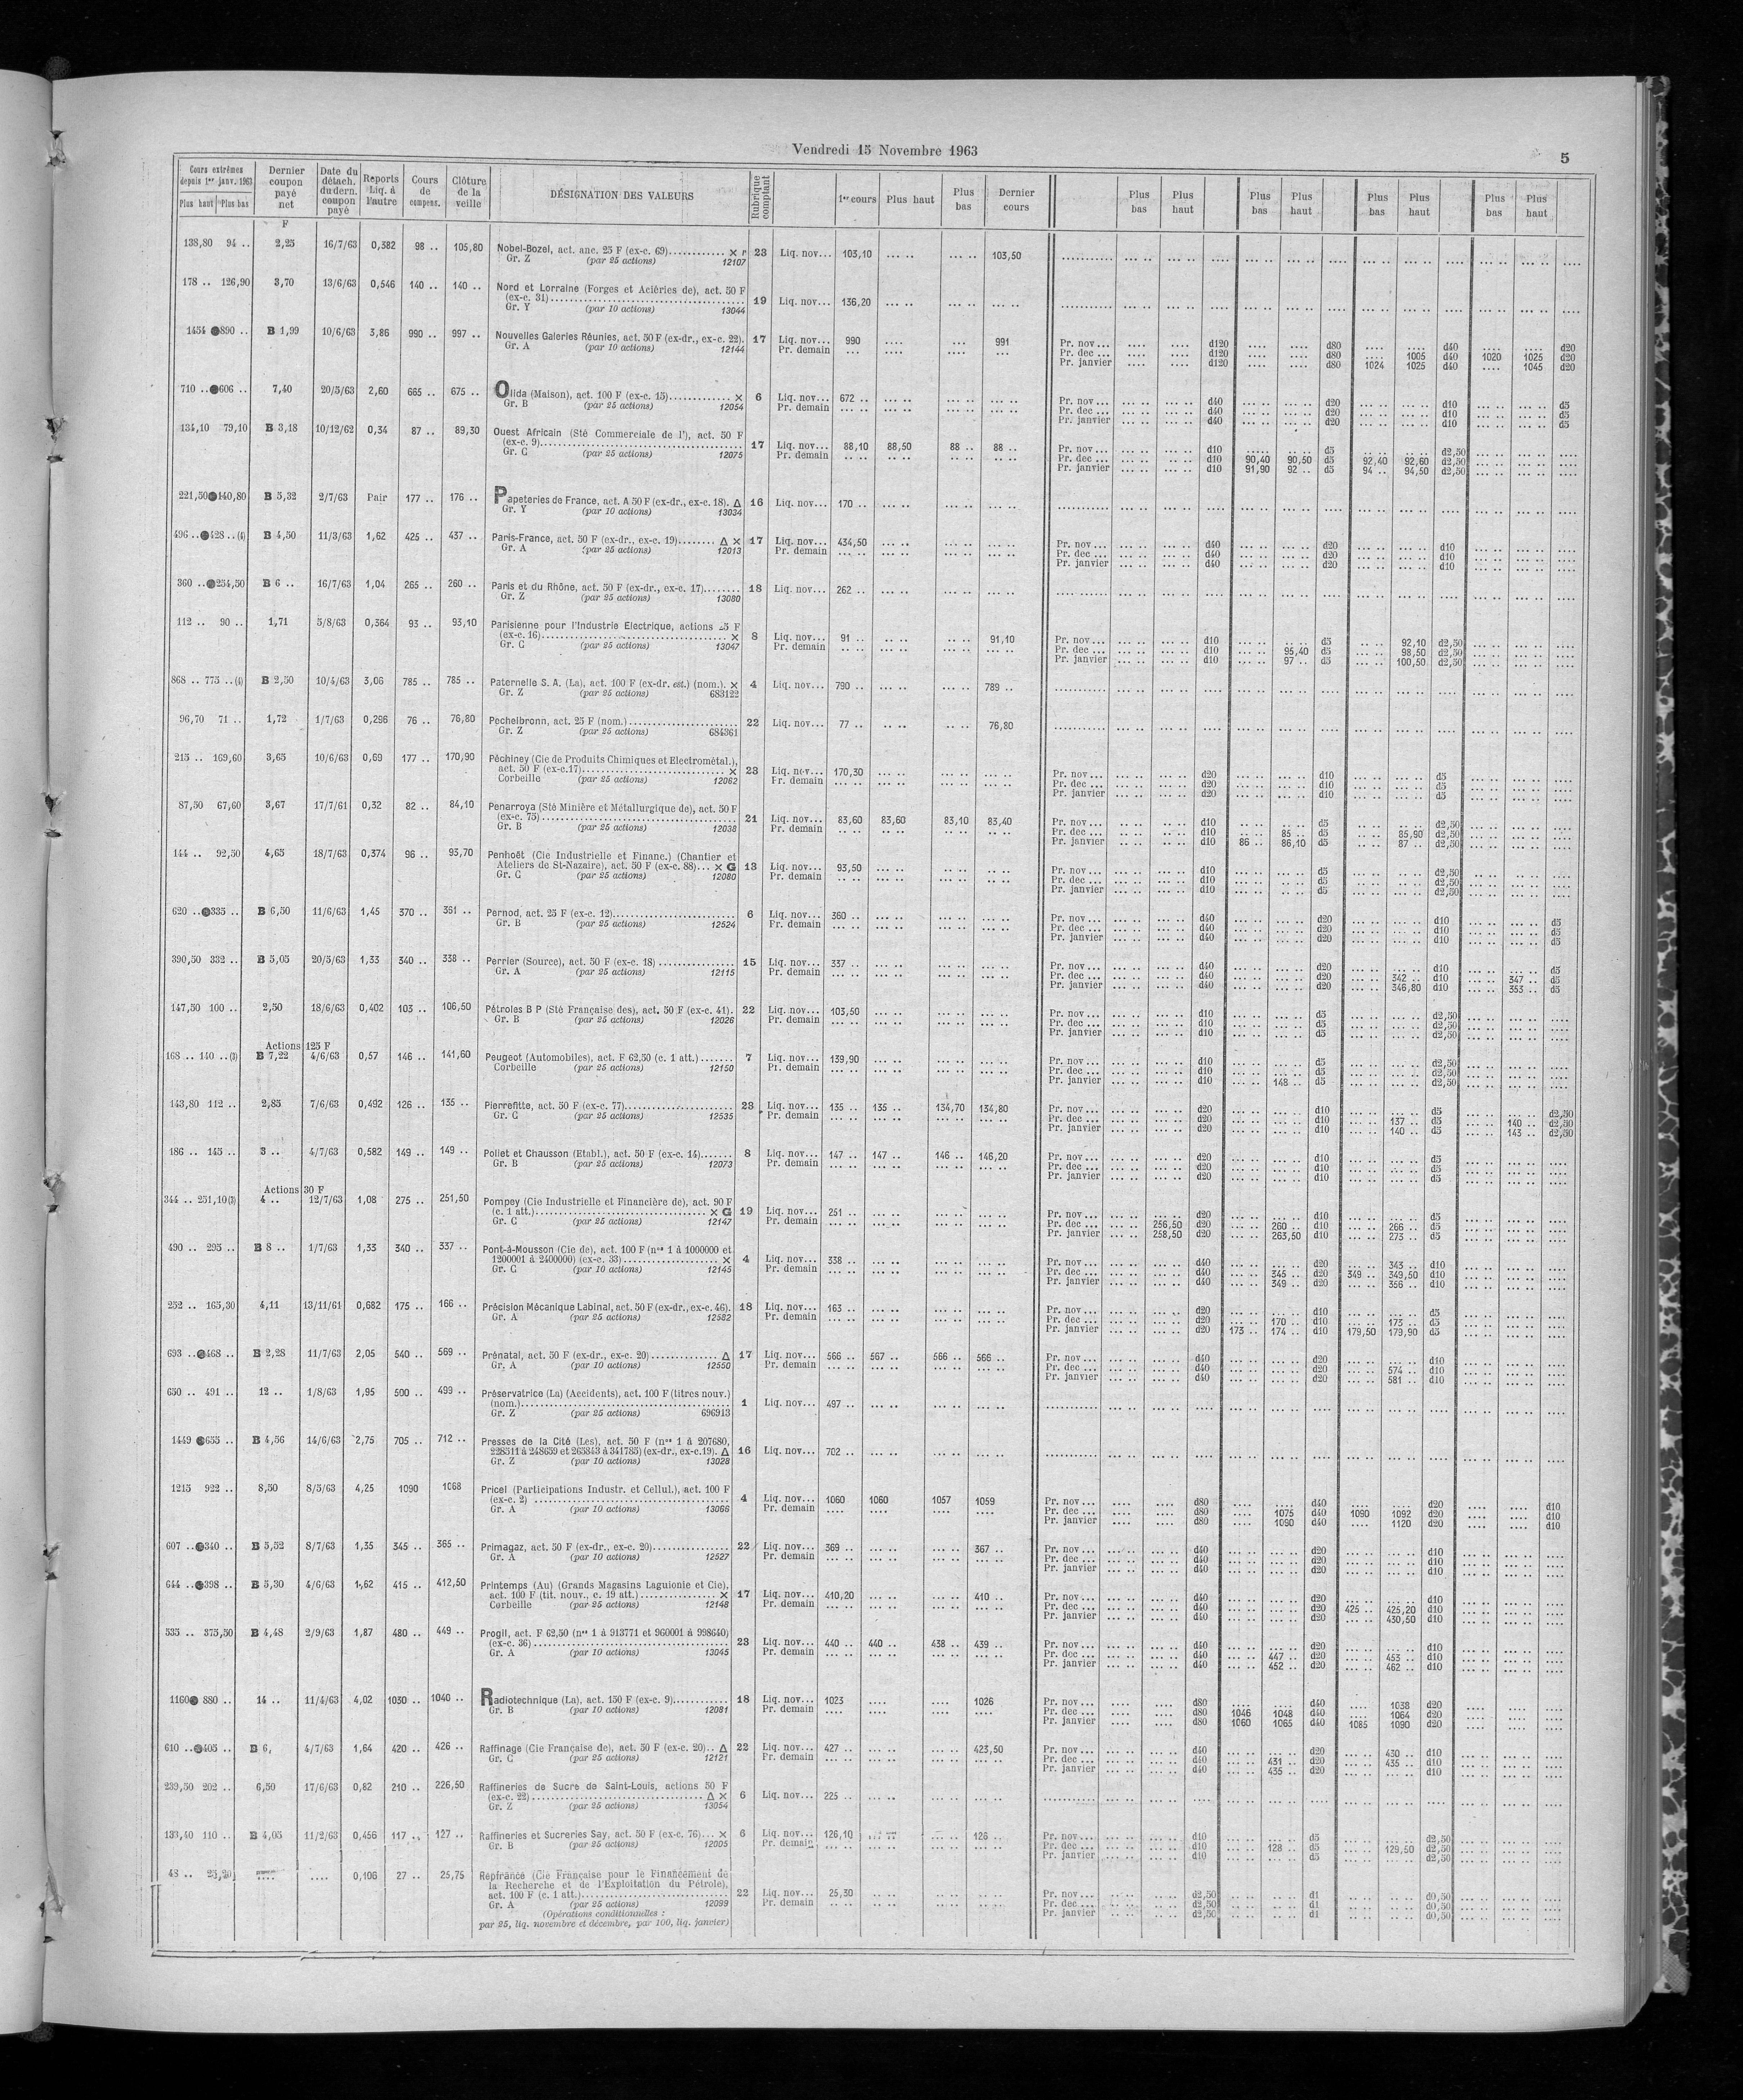 Vendredi 15 Novembre 1963
5
Cours extrêmes depuis 1er janv. 1963 Plus haut Plus bas Dernier coupon payé net Date du détach. du dern. coupon payé Reports Liq. à l'autre Cours de compens. Clôture de la veille DÉSIGNATION DES VALEURS Rubrique comptant 1er cours Plus haut Plus bas Dernier cours Plus bas Plus haut Plus bas Plus haut Plus bas Plus haut Plus bas Plus haut
F
138,80 94 .. 2,25 16/7/63 0,382 98 .. 105,80 Nobel-Bozel, act. anc. 25 F (ex-c. 69)............ × r 23 Liq. nov... 103,10 ... .. ... .. 103,50
Gr. Z (par 25 actions) 12107
178 .. 126,90 3,70 13/6/63 0,546 140 .. 140 .. Nord et Lorraine (Forges et Aciéries de), act. 50 F
(ex-c. 31) 19 Liq. nov... 136,20 ... .. ... .. ... ..
Gr. Y (par 10 actions) 13044
1454 ●890 .. B 1,99 10/6/63 3,86 990 .. 997 .. Nouvelles Galeries Réunies, act. 50 F (ex-dr., ex-c. 22). 17 Liq. nov... 990 .... ... 991 Pr. nov ... .... .... d120 .... .... d80 .... .... d40 d20
Gr. A (par 10 actions) 12144 Pr. demain ... .... .... ... Pr. dec ... .... .... d120 .... .... d80 .... 1005 d40 1020 1025 d20
Pr. janvier .... .... d120 .... .... d80 1024 1025 d40 .... 1045 d20
710 ..●606 .. 7,40 20/5/63 2,60 665 .. 675 .. Olida (Maison), act. 100 F (ex-c. 15)............. × 6 Liq. nov... 672 .. Pr. nov ... d40 d20 d10 d5
Gr. B (par 25 actions) 12054 Pr. demain Pr. dec ... d40 d20 d10 d5
Pr. janvier d40 d20 d10 d5
134,10 79,10 B 3,18 10/12/62 0,34 87 .. 89,30 Ouest Africain (Sté Commerciale de l'), act. 50 F
(ex-c. 9) 17 Liq. nov... 88,10 88,50 88 .. 88 .. Pr. nov ... d10 d5 d2,50
Gr. C (par 25 actions) 12075 Pr. demain Pr. dec ... d10 90,40 90,50 d5 92,40 92,60 d2,50
Pr. janvier d10 91,90 92 .. d5 94 .. 94,50 d2,50
221,50●140,80 B 5,32 2/7/63 Pair 177 .. 176 .. Papeteries de France, act. A 50 F (ex-dr., ex-c. 18). Δ 16 Liq. nov... 170 ..
Gr. Y (par 10 actions) 13034
496 ..●428 ..(4) B 4,50 11/3/63 1,62 425 .. 437 .. Paris-France, act. 50 F (ex-dr., ex-c. 19)........ Δ × 17 Liq. nov... 434,50 Pr. nov ... d40 d20 d10
Gr. A (par 25 actions) 12013 Pr. demain Pr. dec ... d40 d20 d10
Pr. janvier d40 d20 d10
360 ..●254,50 B 6 .. 16/7/63 1,04 265 .. 260 .. Paris et du Rhône, act. 50 F (ex-dr., ex-c. 17)........ 18 Liq. nov... 262 ..
Gr. Z (par 25 actions) 13080
112 .. 90 .. 1,71 5/8/63 0,364 93 .. 93,10 Parisienne pour l'Industrie Electrique, actions 25 F
(ex-c. 16) × 8 Liq. nov... 91 .. 91,10 Pr. nov... d10 d5 92,10 d2,50
Gr. C (par 25 actions) 13047 Pr. demain Pr. dec ... d10 95,40 d5 98,50 d2,50
Pr. janvier d10 97 .. d5 100,50 d2,50
868 .. 775 ..(4) B 2,50 10/4/63 3,06 785 .. 785 .. Paternelle S. A. (La), act. 100 F (ex-dr. est.) (nom.). × 4 Liq. nov... 790 .. 789 ..
Gr. Z (par 25 actions) 683122
96,70 71 .. 1,72 1/7/63 0,296 76 .. 76,80 Pechelbronn, act. 25 F (nom.) 22 Liq. nov... 77 .. 76,80
Gr. Z (par 25 actions) 684361
215 .. 169,60 3,65 10/6/63 0,69 177 .. 170,90 Péchiney (Cie de Produits Chimiques et Electrométal.),
act. 50 F (ex-c.17) × 23 Liq. nov... 170,30 Pr. nov ... d20 d10 d5
Corbeille (par 25 actions) 12062 Pr. demain Pr. dec ... d20 d10 d5
Pr. janvier d20 d10 d5
87,50 67,60 3,67 17/7/61 0,32 82 .. 84,10 Penarroya (Sté Minière et Métallurgique de), act. 50 F
(ex-c. 75) 21 Liq. nov... 83,60 83,60 83,10 83,40 Pr. nov ... d10 d5 d2,50
Gr. B (par 25 actions) 12038 Pr. demain Pr. dec ... d10 85 .. d5 85,90 d2,50
Pr. janvier d10 86 .. 86,10 d5 87 .. d2,50
144 .. 92,50 4,65 18/7/63 0,374 96 .. 93,70 Penhoët (Cie Industrielle et Financ.) (Chantier et
Ateliers de St-Nazaire), act. 50 F (ex-c. 88)... × G 13 Liq. nov... 93,50 Pr. nov ... d10 d5 d2,50
Gr. C (par 25 actions) 12080 Pr. demain Pr. dec ... d10 d5 d2,50
Pr. janvier d10 d5 d2,50
620 ..●335 .. B 6,50 11/6/63 1,45 370 .. 361 .. Pernod, act. 25 F (ex-c. 12) 6 Liq. nov... 360 .. Pr. nov ... d40 d20 d10 d5
Gr. B (par 25 actions) 12524 Pr. demain Pr. dec ... d40 d20 d10 d5
Pr. janvier d40 d20 d10 d5
390,50 332 .. B 5,05 20/5/63 1,33 340 .. 338 .. Perrier (Source), act. 50 F (ex-c. 18) 15 Liq. nov... 337 .. Pr. nov ... d40 d20 d10 d5
Gr. A (par 25 actions) 12115 Pr. demain Pr. dec ... d40 d20 342 .. d10 347 .. d5
Pr. janvier d40 d20 346,80 d10 353 .. d5
147,50 100 .. 2,50 18/6/63 0,402 103 .. 106,50 Pétroles B P (Sté Française des), act. 50 F (ex-c. 41). 22 Liq. nov... 103,50 Pr. nov ... d10 d5 d2,50
Gr. B (par 25 actions) 12026 Pr. demain Pr. dec ... d10 d5 d2,50
Pr. janvier d10 d5 d2,50
Actions 125 F
168 .. 140 ..(3) B 7,22 4/6/63 0,57 146 .. 141,60 Peugeot (Automobiles), act. F 62,50 (c. 1 att.) 7 Liq. nov... 139,90 Pr. nov ... d10 d5 d2,50
Corbeille (par 25 actions) 12150 Pr. demain Pr. dec ... d10 d5 d2,50
Pr. janvier d10 148 .. d5 d2,50
143,80 112 .. 2,85 7/6/63 0,492 126 .. 135 .. Pierrefitte, act. 50 F (ex-c. 77) 23 Liq. nov... 135 .. 135 .. 134,70 134,80 Pr. nov ... d20 d10 d5 d2,50
Gr. C (par 25 actions) 12535 Pr. demain Pr. dec ... d20 d10 137 .. d5 140 .. d2,50
Pr. janvier d20 d10 140 .. d5 143 .. d2,50
186 .. 145 .. 3 .. 4/7/63 0,582 149 .. 149 .. Poliet et Chausson (Etabl.), act. 50 F (ex-c. 14) 8 Liq. nov... 147 .. 147 .. 146 .. 146,20 Pr. nov ... d20 d10 d5
Gr. B (par 25 actions) 12073 Pr. demain Pr. dec ... d20 d10 d5
Pr. janvier d20 d10 d5
Actions 30 F
344 .. 251,10(3) 4 .. 12/7/63 1,08 275 .. 251,50 Pompey (Cie Industrielle et Financière de), act. 90 F
(c. 1 att.) × G 19 Liq. nov... 251 .. Pr. nov ... d20 d10 d5
Gr. C (par 25 actions) 12147 Pr. demain Pr. dec ... 256,50 d20 260 .. d10 266 .. d5
Pr. janvier 258,50 d20 263,50 d10 273 .. d5
490 .. 295 .. B 8 .. 1/7/63 1,33 340 .. 337 .. Pont-à-Mousson (Cie de), act. 100 F (nos 1 à 1000000 et
1200001 à 2400000) (ex-c. 33) × 4 Liq. nov... 338 .. Pr. nov ... d40 d20 343 .. d10
Gr. C (par 10 actions) 12145 Pr. demain Pr. dec ... d40 345 .. d20 349 .. 349,50 d10
Pr. janvier d40 349 .. d20 356 .. d10
252 .. 165,30 4,11 13/11/61 0,682 175 .. 166 .. Précision Mécanique Labinal, act. 50 F (ex-dr., ex-c. 46). 18 Liq. nov... 163 .. Pr. nov ... d20 d10 d5
Gr. A (par 25 actions) 12582 Pr. demain Pr. dec ... d20 170 .. d10 173 .. d5
Pr. janvier d20 173 .. 174 .. d10 179,50 179,90 d5
693 ..●468 .. B 2,28 11/7/63 2,05 540 .. 569 .. Prénatal, act. 50 F (ex-dr., ex-c. 20) Δ 17 Liq. nov... 566 .. 567 .. 566 .. 566 .. Pr. nov ... d40 d20 d10
Gr. A (par 10 actions) 12550 Pr. demain Pr. dec ... d40 d20 574 .. d10
Pr. janvier d40 d20 581 .. d10
630 .. 491 .. 12 .. 1/8/63 1,95 500 .. 499 .. Préservatrice (La) (Accidents), act. 100 F (titres nouv.)
(nom.) 1 Liq. nov... 497 ..
Gr. Z (par 25 actions) 696913
1449 ●655 .. B 4,56 14/6/63 2,75 705 .. 712 .. Presses de la Cité (Les), act. 50 F (nos 1 à 207680,
228511 à 248659 et 265843 à 341785) (ex-dr., ex-c.19). Δ 16 Liq. nov... 702 ..
Gr. Z (par 10 actions) 13028
1215 922 .. 8,50 8/5/63 4,25 1090 1068 Pricel (Participations Industr. et Cellul.), act. 100 F
(ex-c. 2) 4 Liq. nov... 1060 1060 1057 1059 Pr. nov ... d80 d40 d20 d10
Gr. A (par 10 actions) 13066 Pr. demain Pr. dec ... d80 1075 d40 1090 1092 d20 d10
Pr. janvier d80 1090 d40 1120 d20 d10
607 ..●340 .. B 5,52 8/7/63 1,35 345 .. 365 .. Primagaz, act. 50 F (ex-dr., ex-c. 20) 22 Liq. nov... 369 .. 367 .. Pr. nov ... d40 d20 d10
Gr. A (par 10 actions) 12527 Pr. demain Pr. dec ... d40 d20 d10
Pr. janvier d40 d20 d10
644 ..●398 .. B 5,30 4/6/63 1,62 415 .. 412,50 Printemps (Au) (Grands Magasins Laguionie et Cie),
act. 100 F (tit. nouv., c. 19 att.) × 17 Liq. nov... 410,20 410 .. Pr. nov ... d40 d20 d10
Corbeille (par 25 actions) 12148 Pr. demain Pr. dec ... d40 d20 425 .. 425,20 d10
Pr. janvier d40 d20 430,50 d10
535 .. 375,50 B 4,48 2/9/63 1,87 480 .. 449 .. Progil, act. F 62,50 (nos 1 à 913771 et 960001 à 998640)
(ex-c. 36) 23 Liq. nov... 440 .. 440 .. 438 .. 439 .. Pr. nov ... d40 d20 d10
Gr. A (par 10 actions) 13045 Pr. demain Pr. dec ... d40 447 .. d20 453 .. d10
Pr. janvier d40 452 .. d20 462 .. d10
1160● 880 .. 14 .. 11/4/63 4,02 1030 .. 1040 .. Radiotechnique (La), act. 150 F (ex-c. 9) 18 Liq. nov... 1023 1026 Pr. nov ... d80 d40 1038 d20
Gr. B (par 10 actions) 12081 Pr. demain Pr. dec ... d80 1046 1048 d40 1064 d20
Pr. janvier d80 1060 1065 d40 1085 1090 d20
610 ..●405 .. B 6, 4/7/63 1,64 420 .. 426 .. Raffinage (Cie Française de), act. 50 F (ex-c. 20).. Δ 22 Liq. nov... 427 .. 423,50 Pr. nov ... d40 d20 430 .. d10
Gr. C (par 25 actions) 12121 Pr. demain Pr. dec ... d40 431 .. d20 435 .. d10
Pr. janvier d40 435 .. d20 d10
239,50 202 .. 6,50 17/6/63 0,82 210 .. 226,50 Raffineries de Sucre de Saint-Louis, actions 50 F
(ex-c. 22) Δ × 6 Liq. nov... 225 ..
Gr. Z (par 25 actions) 13054
133,40 110 .. B 4,05 11/2/63 0,456 117 .. 127 .. Raffineries et Sucreries Say, act. 50 F (ex-c. 76)... × 6 Liq. nov... 126,10 126 .. Pr. nov ... d10 d5 d2,50
Gr. B (par 25 actions) 12005 Pr. demain Pr. dec ... d10 128 .. d5 129,50 d2,50
Pr. janvier d10 d5 d2,50
48 .. 25,20 .... 0,106 27 .. 25,75 Repfrance (Cie Française pour le Financement de
la Recherche et de l'Exploitation du Pétrole),
act. 100 F (c. 1 att.) 22 Liq. nov... 25,30 Pr. nov ... d2,50 d1 d0,50
Gr. A (par 25 actions) 12099 Pr. demain Pr. dec ... d2,50 d1 d0,50
(Opérations conditionnelles : Pr. janvier d2,50 d1 d0,50
par 25, liq. novembre et décembre, par 100, liq. janvier)